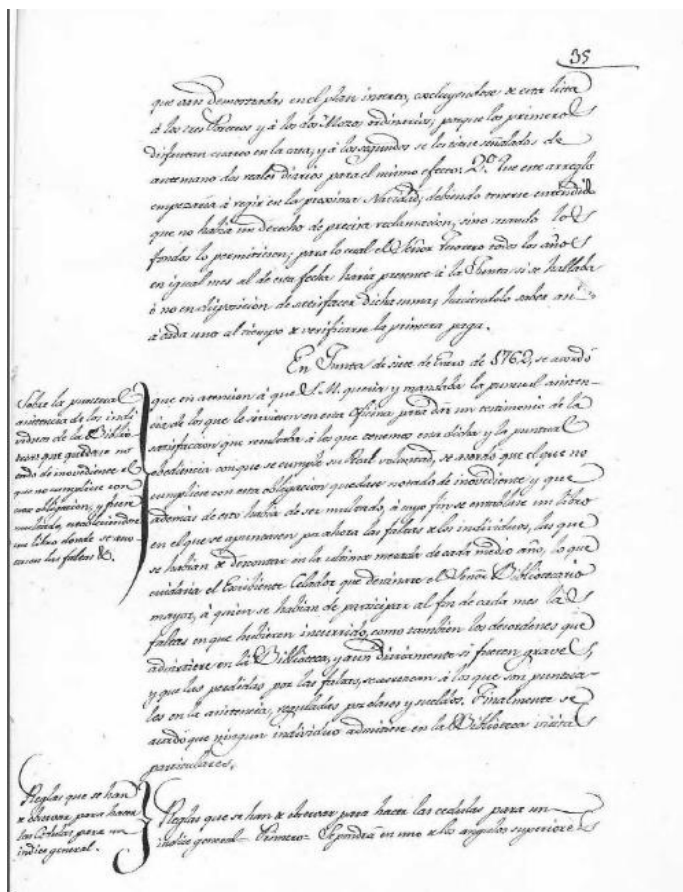 35
que ante demostradas en el plan inserto, excluyendose de esta lista
á los tres Porteros y á los dos Mozos ordinarios; porque los primeros
disfrutan cuarto en la casa, y á los segundos se les tiene señalados de
antemano dos reales diarios para el mismo efecto. 2.º Que este arreglo
empezaria á regir en la proxima Navidad, debiendo tenerse entendido
que no habia un derecho de precisa reclamacion, sino cuando los
fondos lo permitiesen; para lo cual el Señor Tesorero todos los años
en igual mes al de esta fecha haria presente á la Junta si se hallaba
ó no en disposicion de satisfacer dicha suma, haciendolo saber asi
á cada uno al tiempo de verificarse la primera paga.
En Junta de siete de Enero de 1762, se acordó
que en atencion á que S.M. queria y mandaba la puntual asisten-
cia de los que le sirviesen en esta Oficina para dar un testimonio de la
satisfaccion que resultaba á los que tenemos esta dicha y la puntual
obediencia con que se cumple su Real voluntad, se acordó que el que no
cumpliese con esta obligacion quedase notado de inovediente y que
ademas de esto habia de ser multado, á cuyo fin se entablase un libro
en el que se apuntasen por ahora las faltas de los individuos, las que
se habian de descontar en la ultima mesada de cada medio año, lo que
cuidaria el Escribiente Celador que destinare el Señor Bibliotecario
mayor, á quien se habian de participar al fin de cada mes las
faltas en que hubiesen incurrido, como tambien los desordenes que
advirtiere en la Biblioteca, y aun diariamente si fueren graves,
y que las perdidas por las faltas, se acrecieran á los que son puntua-
les en la asistencia, reguladas por clases y sueldos. Finalmente se
acordó que ningun individuo admitiese en la Biblioteca visitas
particulares.
Sobre la puntual
asistencia de los indi-
viduos de la Biblio-
teca; que quedase no-
tado de inovediente el
que no cumpliese con
esta obligacion, y fuera
multado, estableciendose
un libro donde se ano-
tasen las faltas &.
Reglas que se han
de observar para hacer
las Cedulas para un
indice general.
Reglas que se han de observar para hacer las cedulas para un
indice general = Primero = Se pondrá en uno de los angulos superiores